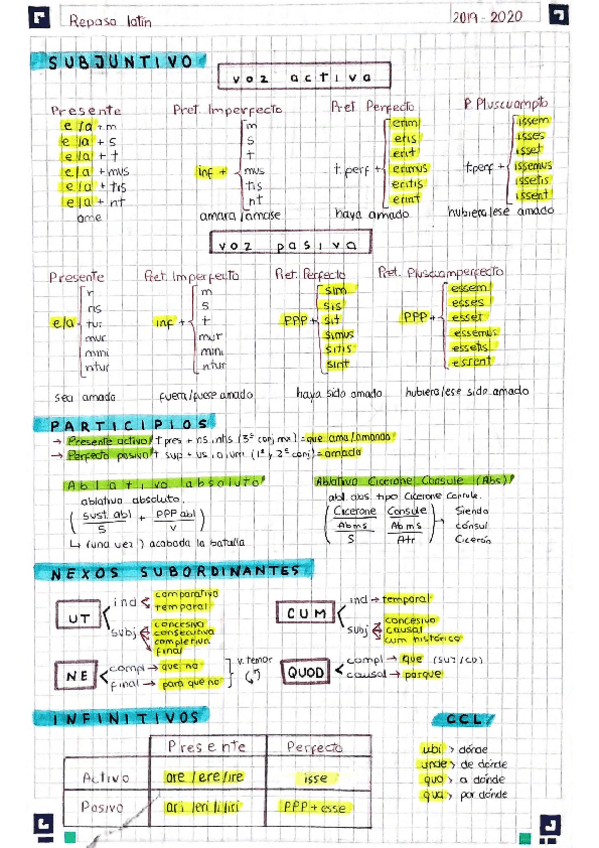 Repaso latín 2019-2020
SUBJUNTIVO
voz activa
Presente Pret. Imperfecto Pret Perfecto P. Pluscuampto
e/a + m m erim issem
e/a + s s eris isses
e/a + t t erit isset
e/a + mus inf + mus t.perf + erimus t.perf + issemus
e/a + tis tis eritis issetis
e/a + nt nt erint issent
ame amara/amase haya amado hubiera/ese amado
voz pasiva
Presente Pret. Imperfecto Pret. Perfecto Pret. Pluscuamperfecto
r m sim essem
ris s sis esses
e/a tur inf + t PPP + sit PPP + esset
mur mur simus essemus
mini mini sitis essetis
ntur ntur sint essent
sea amado fuera/fuese amado haya sido amado hubiera/ese sido amado
PARTICIPIOS
→ Presente activo: t pres + ns, ntis (3ª conj mx) = que ama/amando
→ Perfecto pasivo: t sup + us, a, um (1ª y 2ª conj) = amado
Ablativo absoluto Ablativo Cicerone Consule (Abs)
ablativo absoluto. abl. abs. tipo Cicerone Consule.
( Sust. abl + PPP abl ) ( Cicerone Consule ) → Siendo
S V Abms Abms cónsul
↳ (una vez) acabada la batalla S Atr Cicerón
NEXOS SUBORDINANTES
UT ind comparativa temporal
subj concesiva consecutiva completiva final
CUM ind → temporal
subj concesivo causal cum histórico
NE compl → que no v. temor
final → para que no
QUOD compl → que (SUJ/CD)
causal → porque
INFINITIVOS CCL
Presente Perfecto
Activo are/ere/ire isse
Pasivo ari/eri/i/iri PPP + esse
ubi > dónde
unde > de dónde
quo > a dónde
qua > por dónde